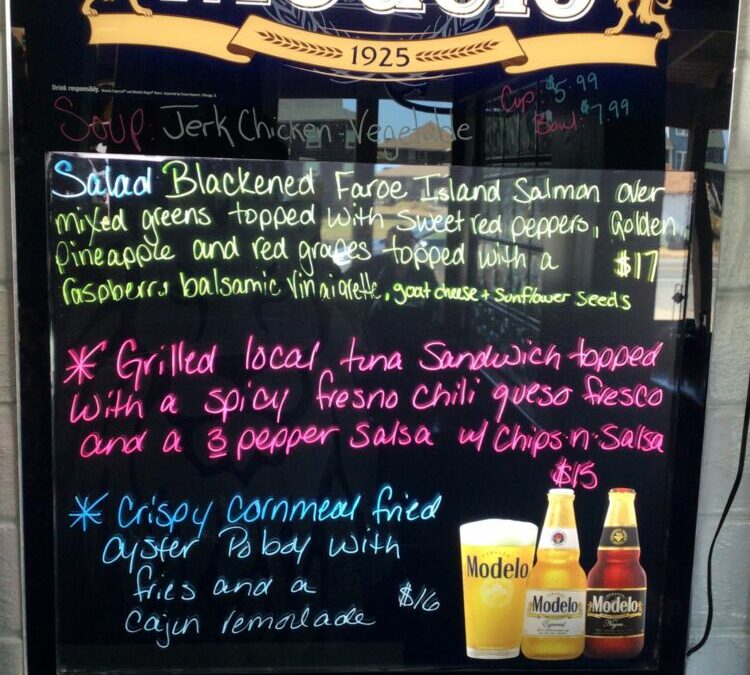 Modelo
1925
Drink responsibly.
Soup: Jerk Chicken Vegetable
Cup: $5.99
Bowl: $7.99
Salad Blackened Faroe Island Salmon over
mixed greens topped with sweet red peppers, Golden
pineapple and red grapes topped with a $17
raspberry balsamic vinaigrette, goat cheese + sunflower seeds
* Grilled local tuna Sandwich topped
with a spicy fresno chili queso fresco
and a 3 pepper Salsa w/ Chips·n·Salsa
$15
* Crispy cornmeal fried
oyster Po boy with
fries and a $16
Cajun remolade
Modelo
Modelo
Especial
Modelo
Negra